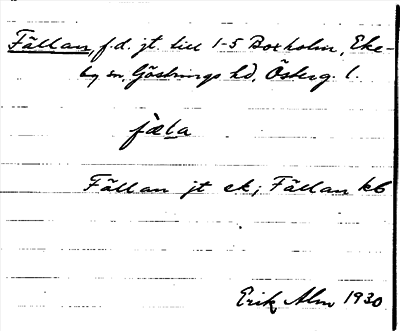 Fällan, f.d. jt. till 1-5 Boxholm, Eke-
by sn, Göstrings hd, Österg. l.
fæ̀la
Fällan jt ek; Fällan kb
Erik Alm 1930